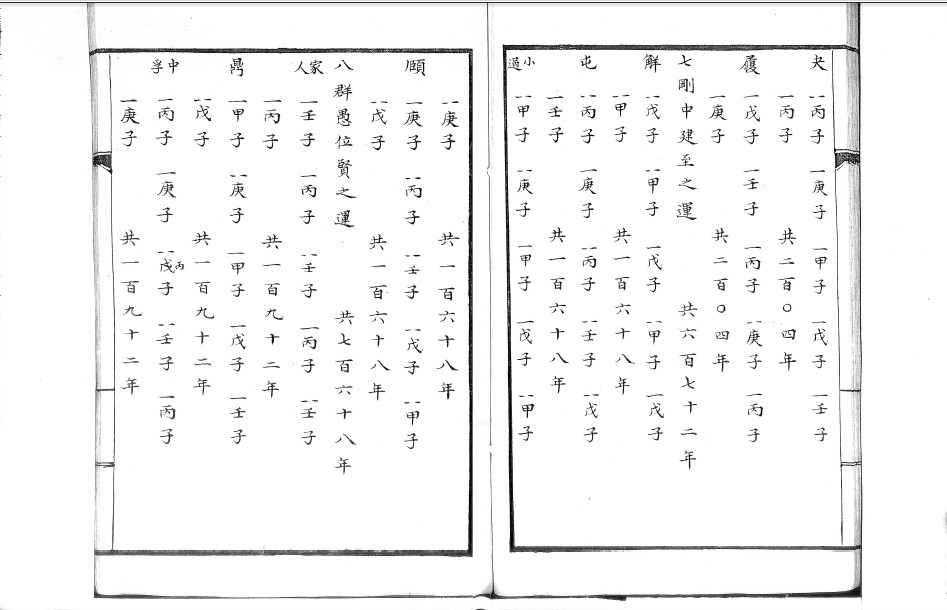 夬 ⚋丙子 一庚子 一甲子 一戊子 一壬子
一丙子 共二百〇四年
履 一戊子 一壬子 一丙子 ⚋庚子 一丙子
一庚子 共二百〇四年
七剛中建至之運 共六百七十二年
解 ⚋戊子 ⚋甲子 一戊子 ⚋甲子 一戊子
⚋甲子 共一百六十八年
屯 ⚋丙子 一庚子 ⚋丙子 ⚋壬子 ⚋戊子
一壬子 共一百六十八年
小過 ⚋甲子 ⚋庚子 一甲子 一戊子 ⚋甲子
⚋庚子 共一百六十八年
頤 一庚子 ⚋丙子 ⚋壬子 ⚋戊子 ⚋甲子
⚋戊子 共一百六十八年
八群愚位賢之運 共七百六十八年
家人 一壬子 一丙子 ⚋壬子 一丙子 ⚋壬子
一丙子 共一百九十二年
鼎 一甲子 ⚋庚子 一甲子 一戊子 一壬子
⚋戊子 共一百九十二年
中孚 一丙子 一庚子 ⚋戊丙子 ⚋壬子 一丙子
一庚子 共一百九十二年